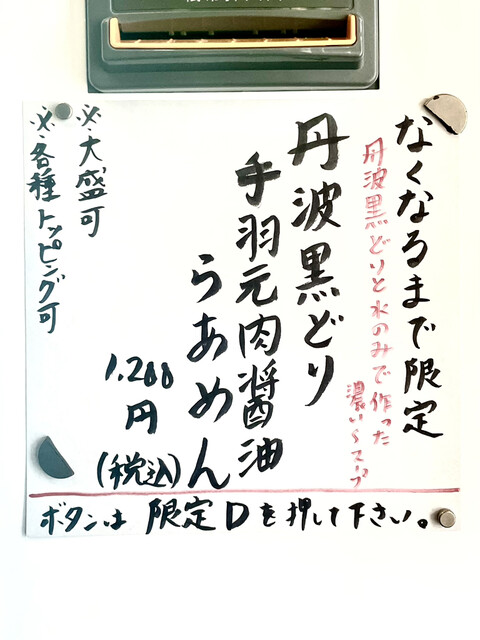 なくなるまで限定
丹波黒どりと水のみで作った
濃いスープ
丹波黒どり
手羽元肉醤油
らあめん
1,200
円
(税込)
※大盛可
※各種トッピング可
ボタンは 限定Dを押して下さい。